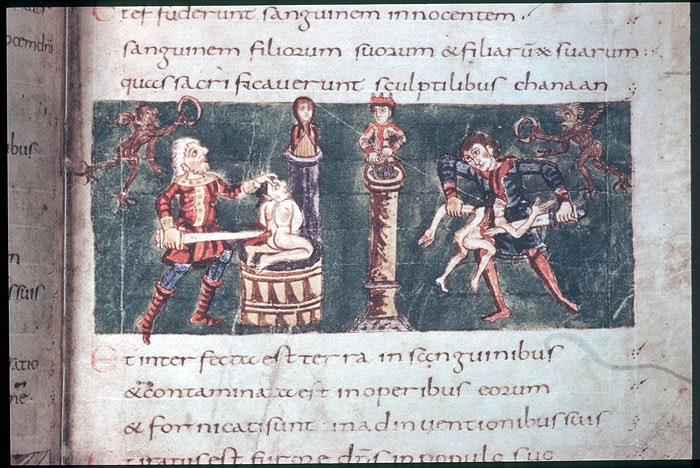 ibus
Et effuderunt sanguinem innocentem
sanguinem filiorum suorum & filiarū suarum:
quas sacrificaverunt sculptilibus chanaan
Et interfecta est terra in sanguinibus
& contaminata est in operibus eorum
& fornicati sunt in adinventionibus suis
tiratus est furore dn̄s in populo suo